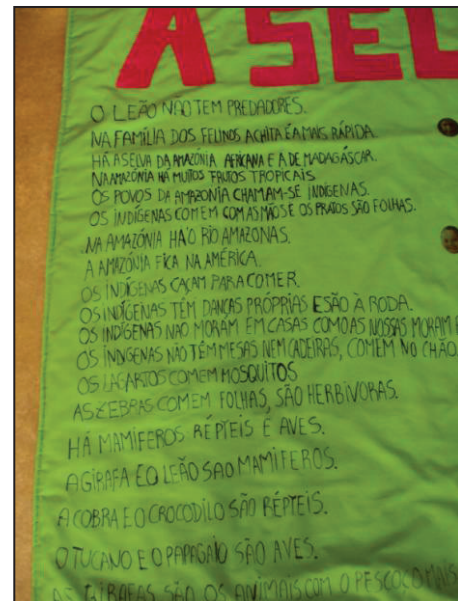 A SEL
O LEÃO NÃO TEM PREDADORES.
NA FAMÍLIA DOS FELINOS A CHITA É A MAIS RÁPIDA.
HÁ A SELVA DA AMAZÓNIA AFRICANA E A DE MADAGÁSCAR.
NA AMAZÓNIA HÁ MUITOS FRUTOS TROPICAIS.
OS POVOS DA AMAZONIA CHAMAM-SE INDÍGENAS.
OS INDÍGENAS COMEM COM AS MÃOS E OS PRATOS SÃO FOLHAS.
NA AMAZÓNIA HÁ O RIO AMAZONAS.
A AMAZÓNIA FICA NA AMÉRICA.
OS INDÍGENAS CAÇAM PARA COMER.
OS INDÍGENAS TÊM DANÇAS PRÓPRIAS E SÃO À RODA.
OS INDÍGENAS NÃO MORAM EM CASAS COMO AS NOSSAS MORAM
OS INDÍGENAS NÃO TÊM MESAS NEM CADEIRAS, COMEM NO CHÃO.
OS LAGARTOS COMEM MOSQUITOS
AS ZEBRAS COMEM FOLHAS, SÃO HERBIVORAS.
HÁ MAMIFEROS RÉPTEIS E AVES.
A GIRAFA E O LEÃO SÃO MAMIFEROS.
A COBRA E O CROCODILO SÃO RÉPTEIS.
O TUCANO E O PAPAGAIO SÃO AVES.
AS GIRAFAS SÃO OS ANIMAIS COM O PESCOÇO MAIS